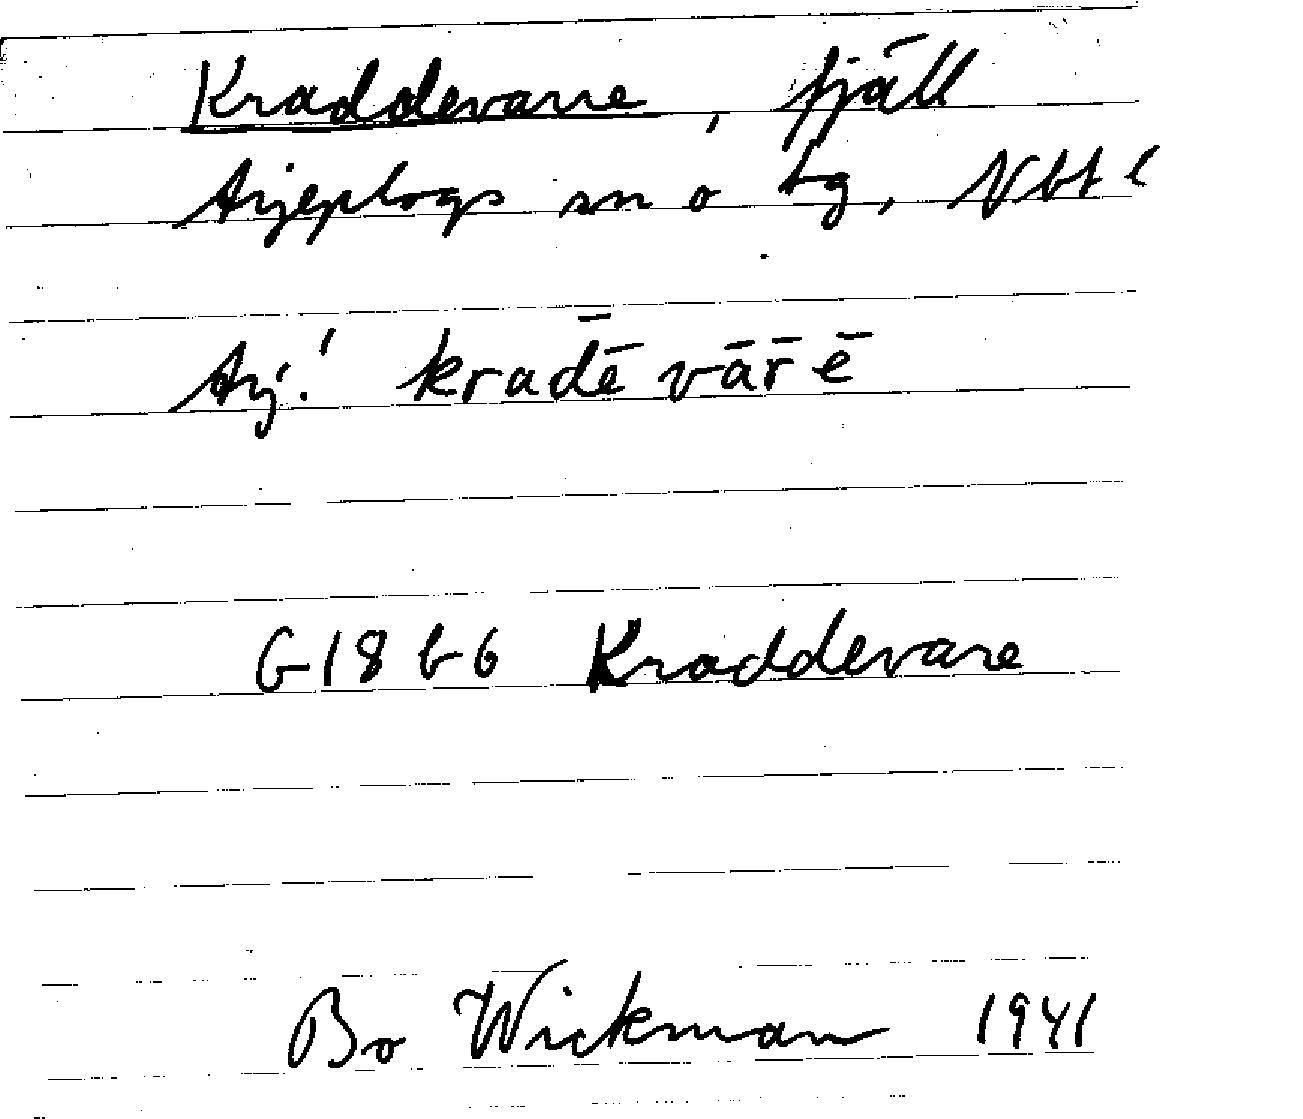 Kraddevare, fjäll
Arjeplogs sn o tg, Nbt l
Arj.! krad̄ē vār̄ē
G18 b6 Kraddevare
Bo Wickman 1941